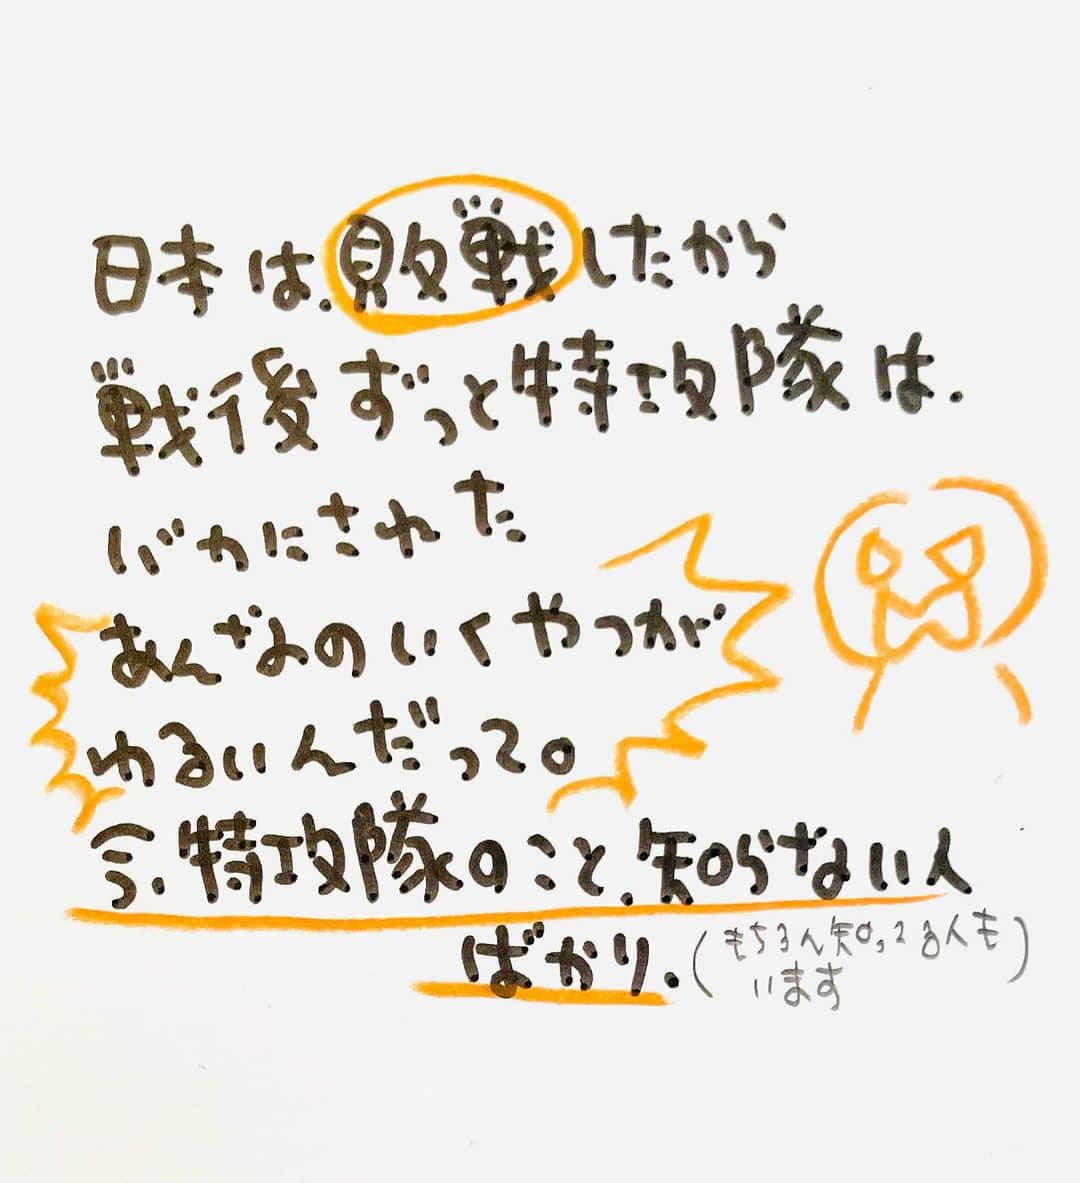 日本は、敗戦したから
戦後ずっと特攻隊は、
バカにされた
あんなのいくやつが
わるいんだって。
今、特攻隊のこと、知らない人
ばかり、(もちろん知ってる人も
います)